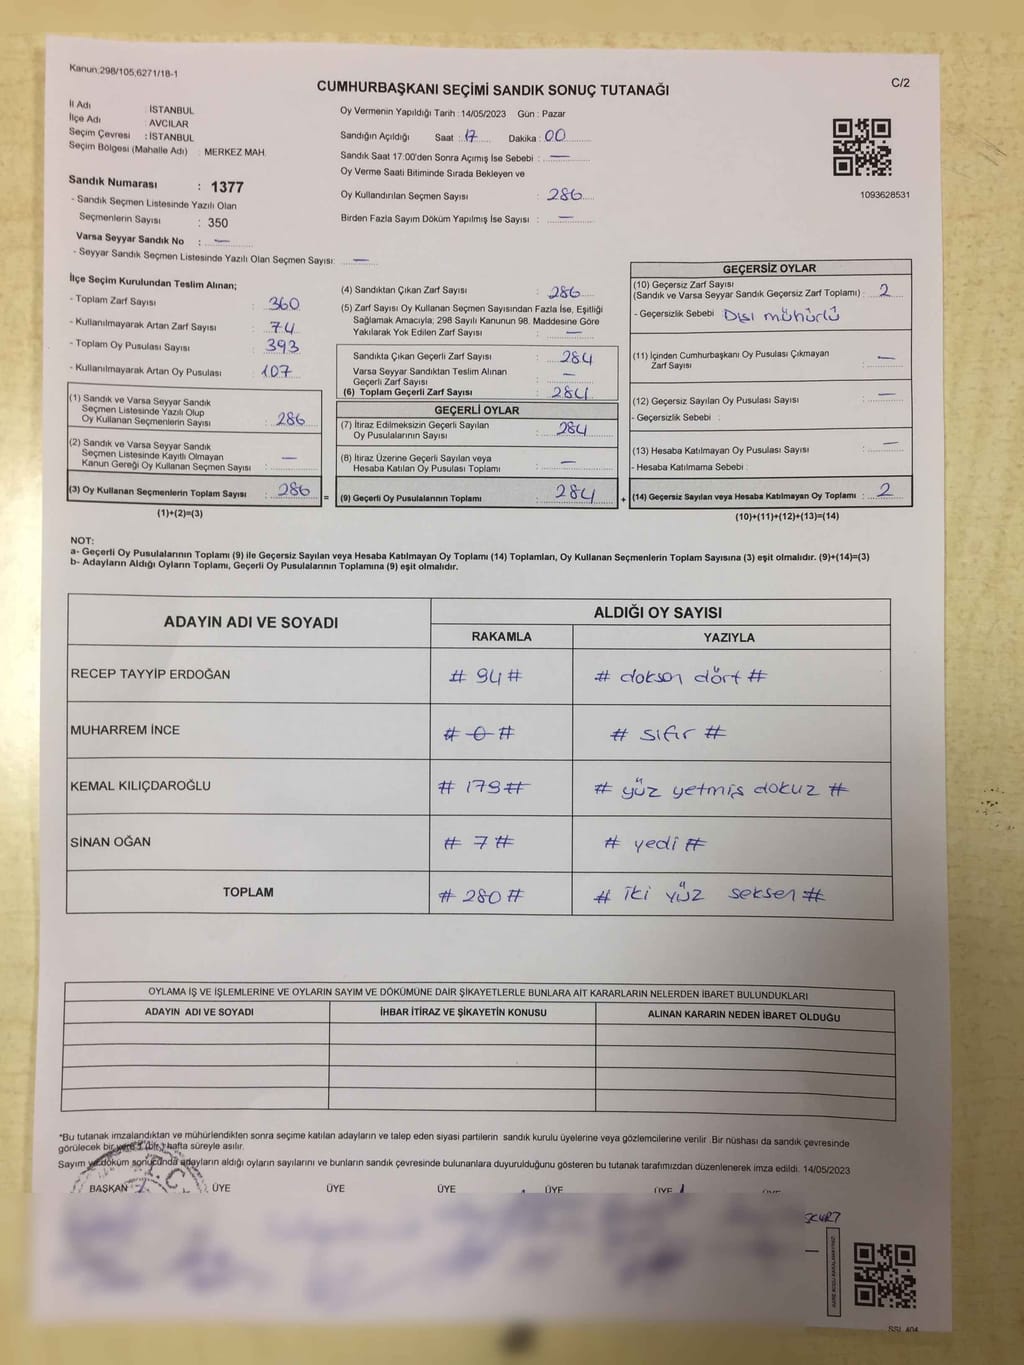 Kanun:298/105,6271/18-1
C/2
CUMHURBAŞKANI SEÇİMİ SANDIK SONUÇ TUTANAĞI
İl Adı İSTANBUL
İlçe Adı : AVCILAR
Seçim Çevresi : İSTANBUL
Seçim Bölgesi (Mahalle Adı) : MERKEZ MAH.
Sandık Numarası : 1377
- Sandık Seçmen Listesinde Yazılı Olan
Seçmenlerin Sayısı : 350
Varsa Seyyar Sandık No : —
- Seyyar Sandık Seçmen Listesinde Yazılı Olan Seçmen Sayısı: —
Oy Vermenin Yapıldığı Tarih : 14/05/2023 Gün : Pazar
Sandığın Açıldığı Saat : 17 Dakika : 00
Sandık Saat 17:00'den Sonra Açımış İse Sebebi : —
Oy Verme Saati Bitiminde Sırada Bekleyen ve
Oy Kullandırılan Seçmen Sayısı : 286
Birden Fazla Sayım Döküm Yapılmış İse Sayısı : —
1093628531
İlçe Seçim Kurulundan Teslim Alınan;
- Toplam Zarf Sayısı : 360
- Kullanılmayarak Artan Zarf Sayısı : 74
- Toplam Oy Pusulası Sayısı : 393
- Kullanılmayarak Artan Oy Pusulası : 107
(1) Sandık ve Varsa Seyyar Sandık
Seçmen Listesinde Yazılı Olup
Oy Kullanan Seçmenlerin Sayısı : 286
(2) Sandık ve Varsa Seyyar Sandık
Seçmen Listesinde Kayıtlı Olmayan
Kanun Gereği Oy Kullanan Seçmen Sayısı : —
(3) Oy Kullanan Seçmenlerin Toplam Sayısı : 286 =
(1)+(2)=(3)
(4) Sandıktan Çıkan Zarf Sayısı : 286
(5) Zarf Sayısı Oy Kullanan Seçmen Sayısından Fazla İse, Eşitliği
Sağlamak Amacıyla; 298 Sayılı Kanunun 98. Maddesine Göre
Yakılarak Yok Edilen Zarf Sayısı : —
Sandıkta Çıkan Geçerli Zarf Sayısı : 284
Varsa Seyyar Sandıktan Teslim Alınan
Geçerli Zarf Sayısı : —
(6) Toplam Geçerli Zarf Sayısı : 284
GEÇERLİ OYLAR
(7) İtiraz Edilmeksizin Geçerli Sayılan
Oy Pusulalarının Sayısı : 284
(8) İtiraz Üzerine Geçerli Sayılan veya
Hesaba Katılan Oy Pusulası Toplamı : —
(9) Geçerli Oy Pusulalarının Toplamı : 284 +
GEÇERSİZ OYLAR
(10) Geçersiz Zarf Sayısı
(Sandık ve Varsa Seyyar Sandık Geçersiz Zarf Toplamı) : 2
- Geçersizlik Sebebi Dışı mühürlü
(11) İçinden Cumhurbaşkanı Oy Pusulası Çıkmayan
Zarf Sayısı : —
(12) Geçersiz Sayılan Oy Pusulası Sayısı : —
- Geçersizlik Sebebi :
(13) Hesaba Katılmayan Oy Pusulası Sayısı : —
- Hesaba Katılmama Sebebi :
(14) Geçersiz Sayılan veya Hesaba Katılmayan Oy Toplamı : 2
(10)+(11)+(12)+(13)=(14)
NOT:
a- Geçerli Oy Pusulalarının Toplamı (9) ile Geçersiz Sayılan veya Hesaba Katılmayan Oy Toplamı (14) Toplamları, Oy Kullanan Seçmenlerin Toplam Sayısına (3) eşit olmalıdır. (9)+(14)=(3)
b- Adayların Aldığı Oyların Toplamı, Geçerli Oy Pusulalarının Toplamına (9) eşit olmalıdır.
ADAYIN ADI VE SOYADI
ALDIĞI OY SAYISI
RAKAMLA YAZIYLA
RECEP TAYYİP ERDOĞAN # 94 # # doksan dört #
MUHARREM İNCE # 0 # # sıfır #
KEMAL KILIÇDAROĞLU # 179 # # yüz yetmiş dokuz #
SİNAN OĞAN # 7 # # yedi #
TOPLAM # 280 # # iki yüz seksen #
OYLAMA İŞ VE İŞLEMLERİNE VE OYLARIN SAYIM VE DÖKÜMÜNE DAİR ŞİKAYETLERLE BUNLARA AİT KARARLARIN NELERDEN İBARET BULUNDUKLARI
ADAYIN ADI VE SOYADI İHBAR İTİRAZ VE ŞİKAYETİN KONUSU ALINAN KARARIN NEDEN İBARET OLDUĞU
*Bu tutanak imzalandıktan ve mühürlendikten sonra seçime katılan adayların ve talep eden siyasi partilerin sandık kurulu üyelerine veya gözlemcilerine verilir .Bir nüshası da sandık çevresinde
görülecek bir yere 1 (bir ) hafta süreyle asılır.
Sayım ve döküm sonucunda adayların aldığı oyların sayılarını ve bunların sandık çevresinde bulunanlara duyurulduğunu gösteren bu tutanak tarafımızdan düzenlenerek imza edildi. 14/05/2023
BAŞKAN ÜYE ÜYE ÜYE ÜYE ÜYE
T.C.